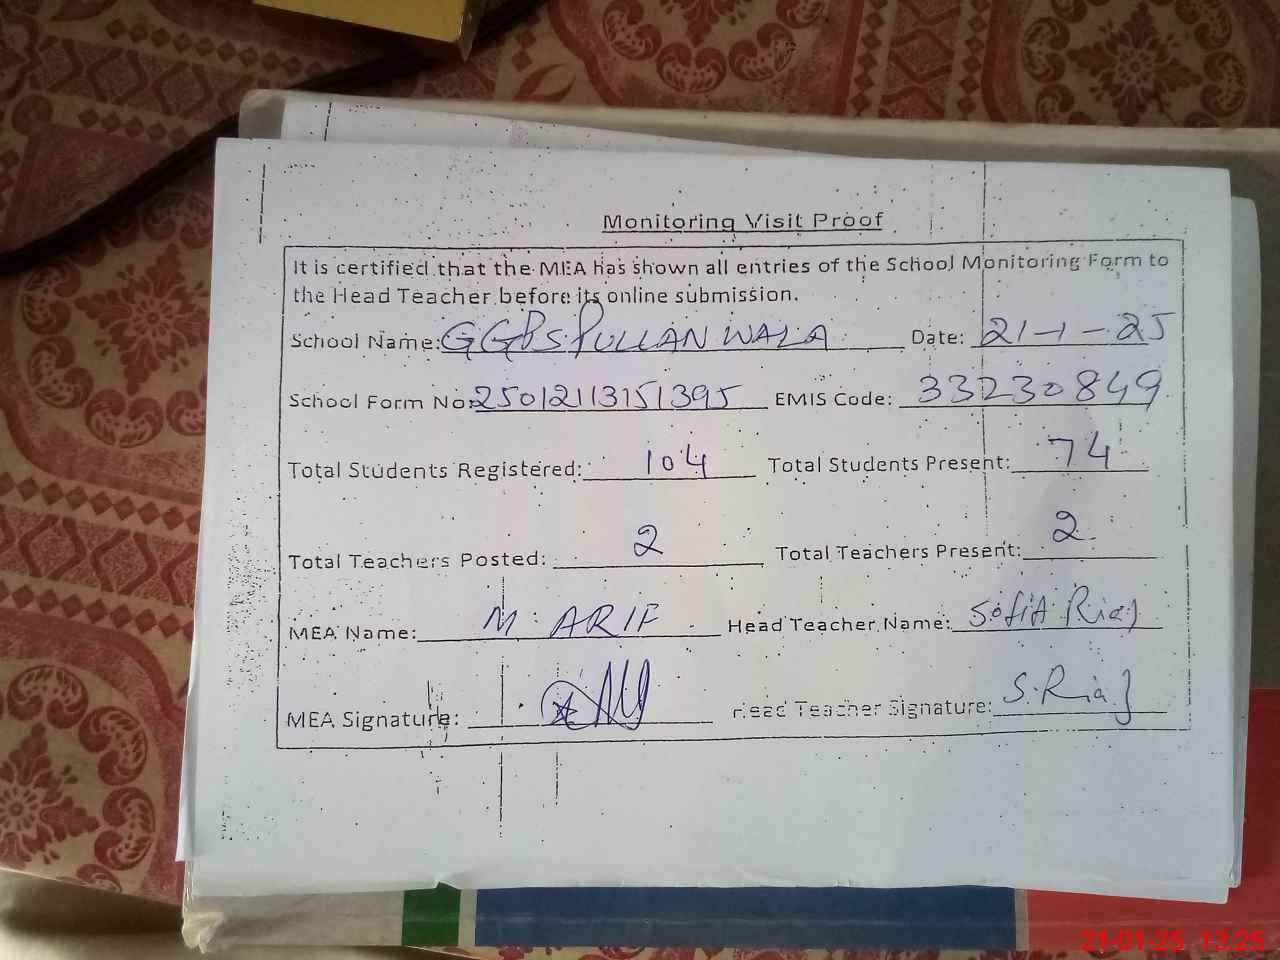 Monitoring Visit Proof
It is certified that the MEA has shown all entries of the School Monitoring Form to
the Head Teacher before its online submission.
School Name: GGPS PULLAN WALA Date: 21-1-25
School Form No: 25012113151395 EMIS Code: 33230849
Total Students Registered: 104 Total Students Present: 74
Total Teachers Posted: 2 Total Teachers Present: 2
MEA Name: M. ARIF Head Teacher Name: Sofia Riaz
MEA Signature: Head Teacher Signature: S. Riaz
21-01-25 13:25